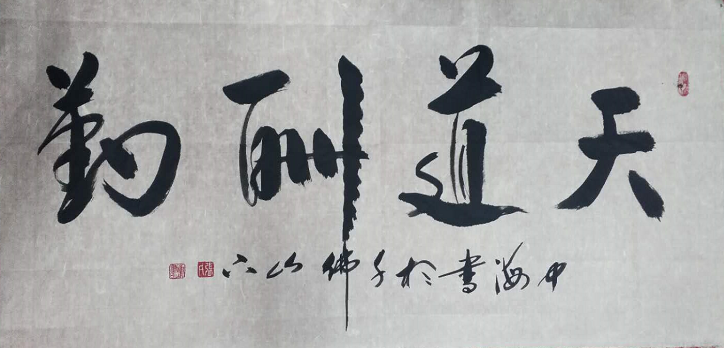 天道酬勤
中海書於千佛山下